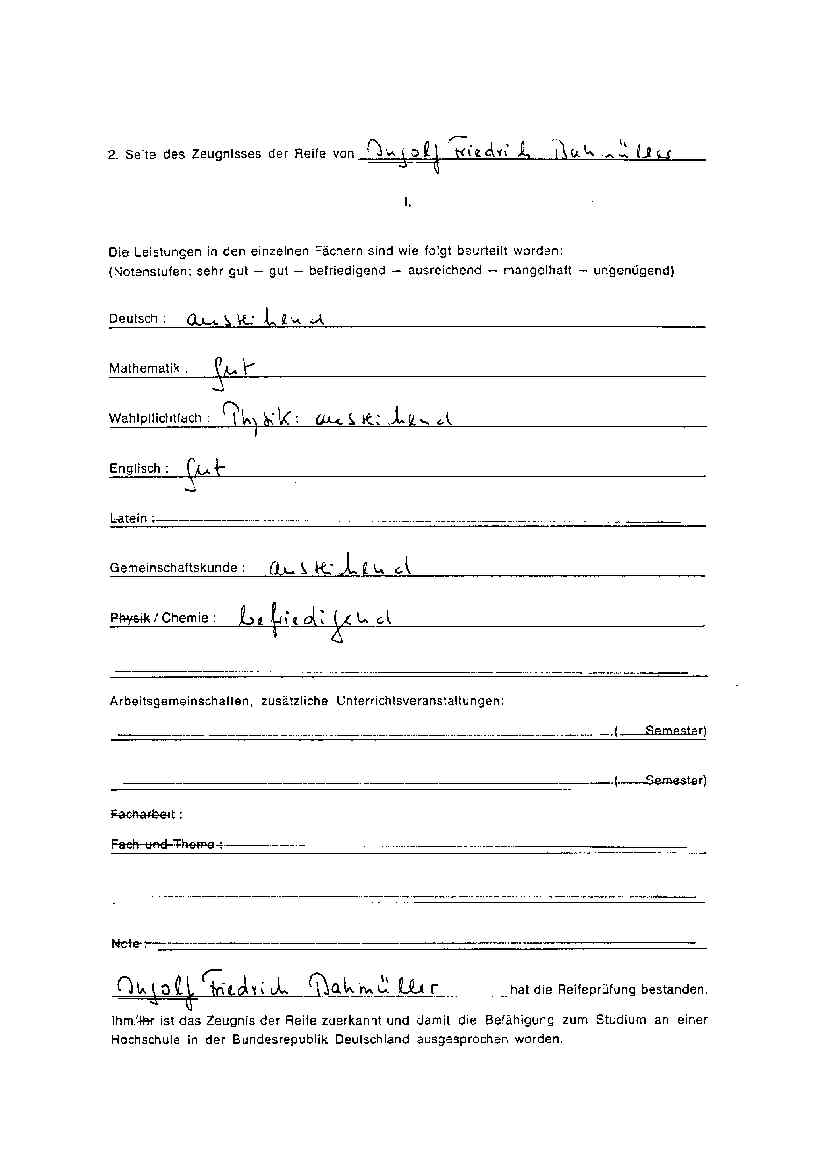 2. Seite des Zeugnisses der Reife von Ingolf Friedrich Dahmüller
I.
Die Leistungen in den einzelnen Fächern sind wie folgt beurteilt worden:
(Notenstufen: sehr gut – gut – befriedigend – ausreichend – mangelhaft – ungenügend)
Deutsch : ausreichend
Mathematik : gut
Wahlpflichtfach : Physik: ausreichend
Englisch : gut
Latein :
Gemeinschaftskunde : ausreichend
Physik / Chemie : befriedigend
Arbeitsgemeinschaften, zusätzliche Unterrichtsveranstaltungen:
( Semester)
( Semester)
Facharbeit :
Fach und Thema :
Note :
Ingolf Friedrich Dahmüller hat die Reifeprüfung bestanden.
Ihm/Ihr ist das Zeugnis der Reife zuerkannt und damit die Befähigung zum Studium an einer
Hochschule in der Bundesrepublik Deutschland ausgesprochen worden.